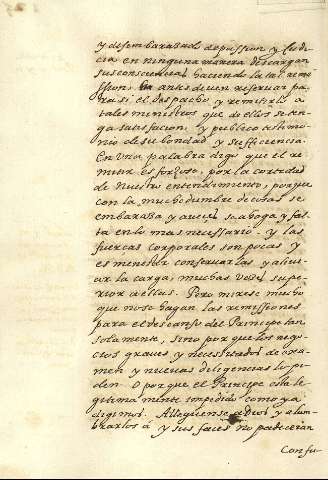 y desembarazado de passion y Codi
cia en ninguna manera descargan
sus consciencias haciendo la tal remi
ssion, antes deven reservar pa
ra si el despacho y remitirlo a
tales ministros que de ellos se ten
ga satisfacion, y publico testimo
nio de su bondad y sufficiencia.
En una palabra digo que el re
mitir es forçoso, por la cortedad
de nuestro entendimiento, porque
con la muchedumbre de cosas se
embaraza y aveces se ahoga y fal
ta en lo mas necessario, y las
fuerças corporales son pocas y
es menester conservarlas y alivi
ar la carga, muchas veces supe
rior a ellas. Pero mirese mucho
que no se hagan las remissiones
para el descanso del Principe tan
solamente, sino por que los nego
cios graves y necessitados de exa
men y nuevas diligencias lo pi
den. O por que el Principe esta le
gitima mente impedido como ya
digimos. Alleguense a Dios y alum
brarlos á y sus faces no padeceran
Confu-